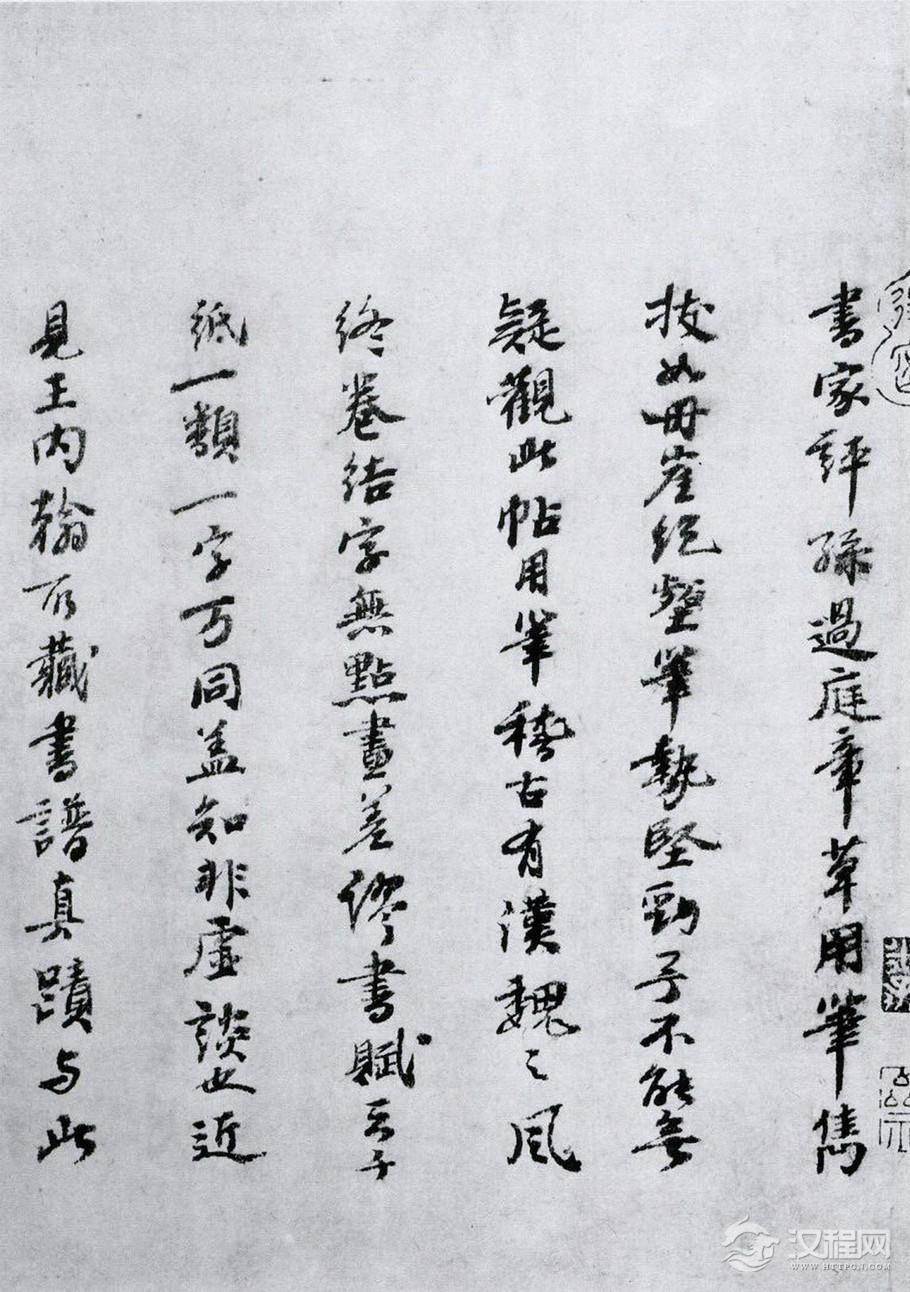 書家評孫過庭章草用筆雋
拔如丹崖絕壑筆勢堅勁予不能無
疑觀此帖用筆稽古有漢魏之風
終卷結字無點畫差繆書賦云千
紙一類一字万同盖知非虛談也近
見王内翰所藏書譜真蹟与此
汉程网
WWW.HTTPCN.COM